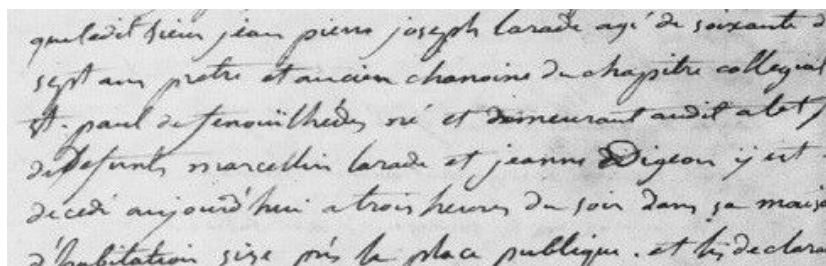 que ledit sieur jean pierre joseph larade agé de soixante d
sept ans pretre et ancien chanoine du chapitre collegial
st. paul de fenouilhédes né et demeurant audit alet f
de defunts marcellin larade et jeanne Digeon y est
decedé aujourd'hui a trois heures du soir dans sa maiso
d'habitation sise prés la place publique. et les declara